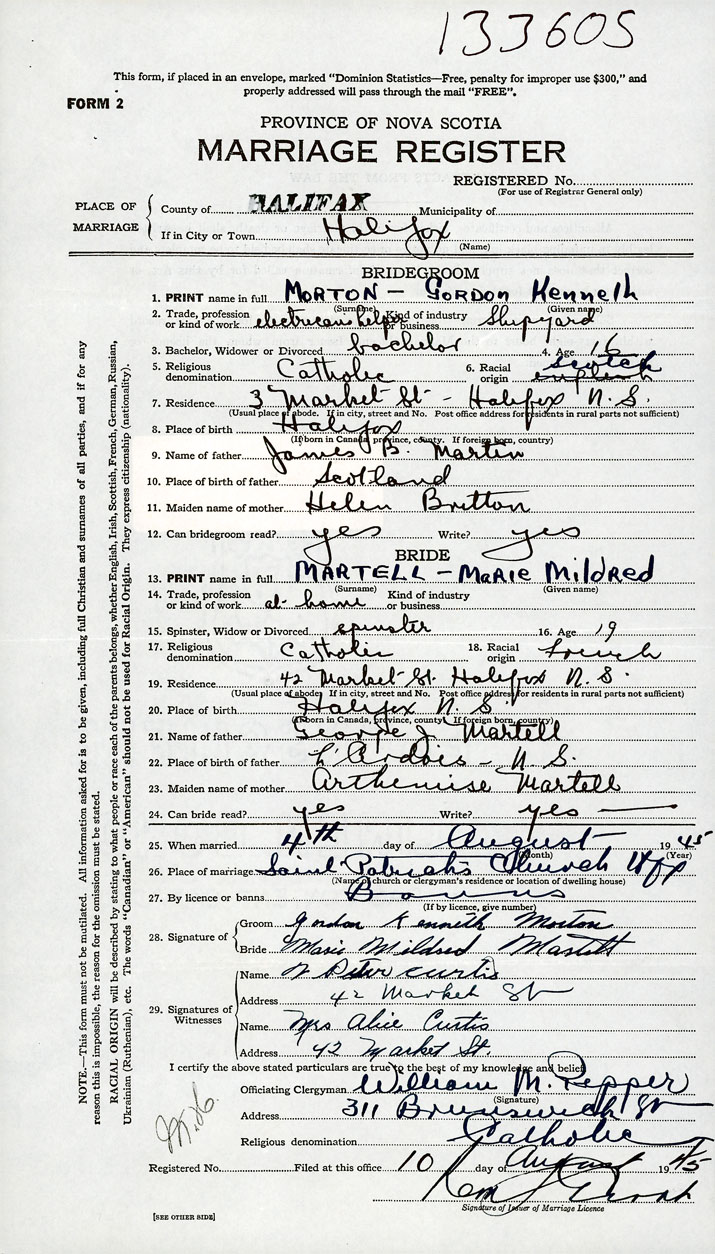 133605
This form, if placed in an envelope, marked "Dominion Statistics—Free, penalty for improper use $300," and
properly addressed will pass through the mail "FREE".
FORM 2
PROVINCE OF NOVA SCOTIA
MARRIAGE REGISTER
REGISTERED No.
(For use of Registrar General only)
PLACE OF MARRIAGE
County of HALIFAX Municipality of
If in City or Town Halifax
(Name)
BRIDEGROOM
1. PRINT name in full MORTON - GORDON Kenneth
(Surname) (Given name)
2. Trade, profession or kind of work electricans helper Kind of industry or business Shipyard
3. Bachelor, Widower or Divorced bachelor 4. Age 16
5. Religious denomination Catholic 6. Racial origin Scotch
7. Residence 3 Market St - Halifax N.S.
(Usual place of abode. If in city, street and No. Post office address for residents in rural parts not sufficient)
8. Place of birth Halifax
(If born in Canada, province, county. If foreign born, country)
9. Name of father James B. Martin
10. Place of birth of father Scotland
11. Maiden name of mother Helen Britton
12. Can bridegroom read? yes Write? yes
BRIDE
13. PRINT name in full MARTELL - MaRie Mildred
(Surname) (Given name)
14. Trade, profession or kind of work at home Kind of industry or business
15. Spinster, Widow or Divorced spinster 16. Age 19
17. Religious denomination Catholic 18. Racial origin French
19. Residence 42 Market St. Halifax N.S.
(Usual place of abode. If in city, street and No. Post office address for residents in rural parts not sufficient)
20. Place of birth Halifax N.S.
(If born in Canada, province, county. If foreign born, country)
21. Name of father George J. Martell
22. Place of birth of father L'Ardois - N.S.
23. Maiden name of mother Arthemise Martell
24. Can bride read? yes Write? yes
25. When married 4th day of August 1945
(Month) (Year)
26. Place of marriage Saint Patrick's Church Hfx
(Name of church or clergyman's residence or location of dwelling house)
27. By licence or banns Banns
(If by licence, give number)
28. Signature of
Groom Gordon Kenneth Morton
Bride Marie Mildred Martell
29. Signatures of Witnesses
Name Peter Curtis
Address 42 Market St
Name Mrs Alice Curtis
Address 42 Market St.
I certify the above stated particulars are true to the best of my knowledge and belief
Officiating Clergyman William M. Pepper
(Signature)
Address 311 Brunswick St
Religious denomination Catholic
Registered No. Filed at this office 10 day of August 1945
Signature of Issuer of Marriage Licence
[SEE OTHER SIDE]
NOTE.—This form must not be mutilated. All information asked for is to be given, including full Christian and surnames of all parties, and if for any
reason this is impossible, the reason for the omission must be stated.
RACIAL ORIGIN will be described by stating to what people or race each of the parents belongs, whether English, Irish, Scottish, French, German, Russian,
Ukrainian (Ruthenian), etc. The words "Canadian" or "American" should not be used for Racial Origin. They express citizenship (nationality).